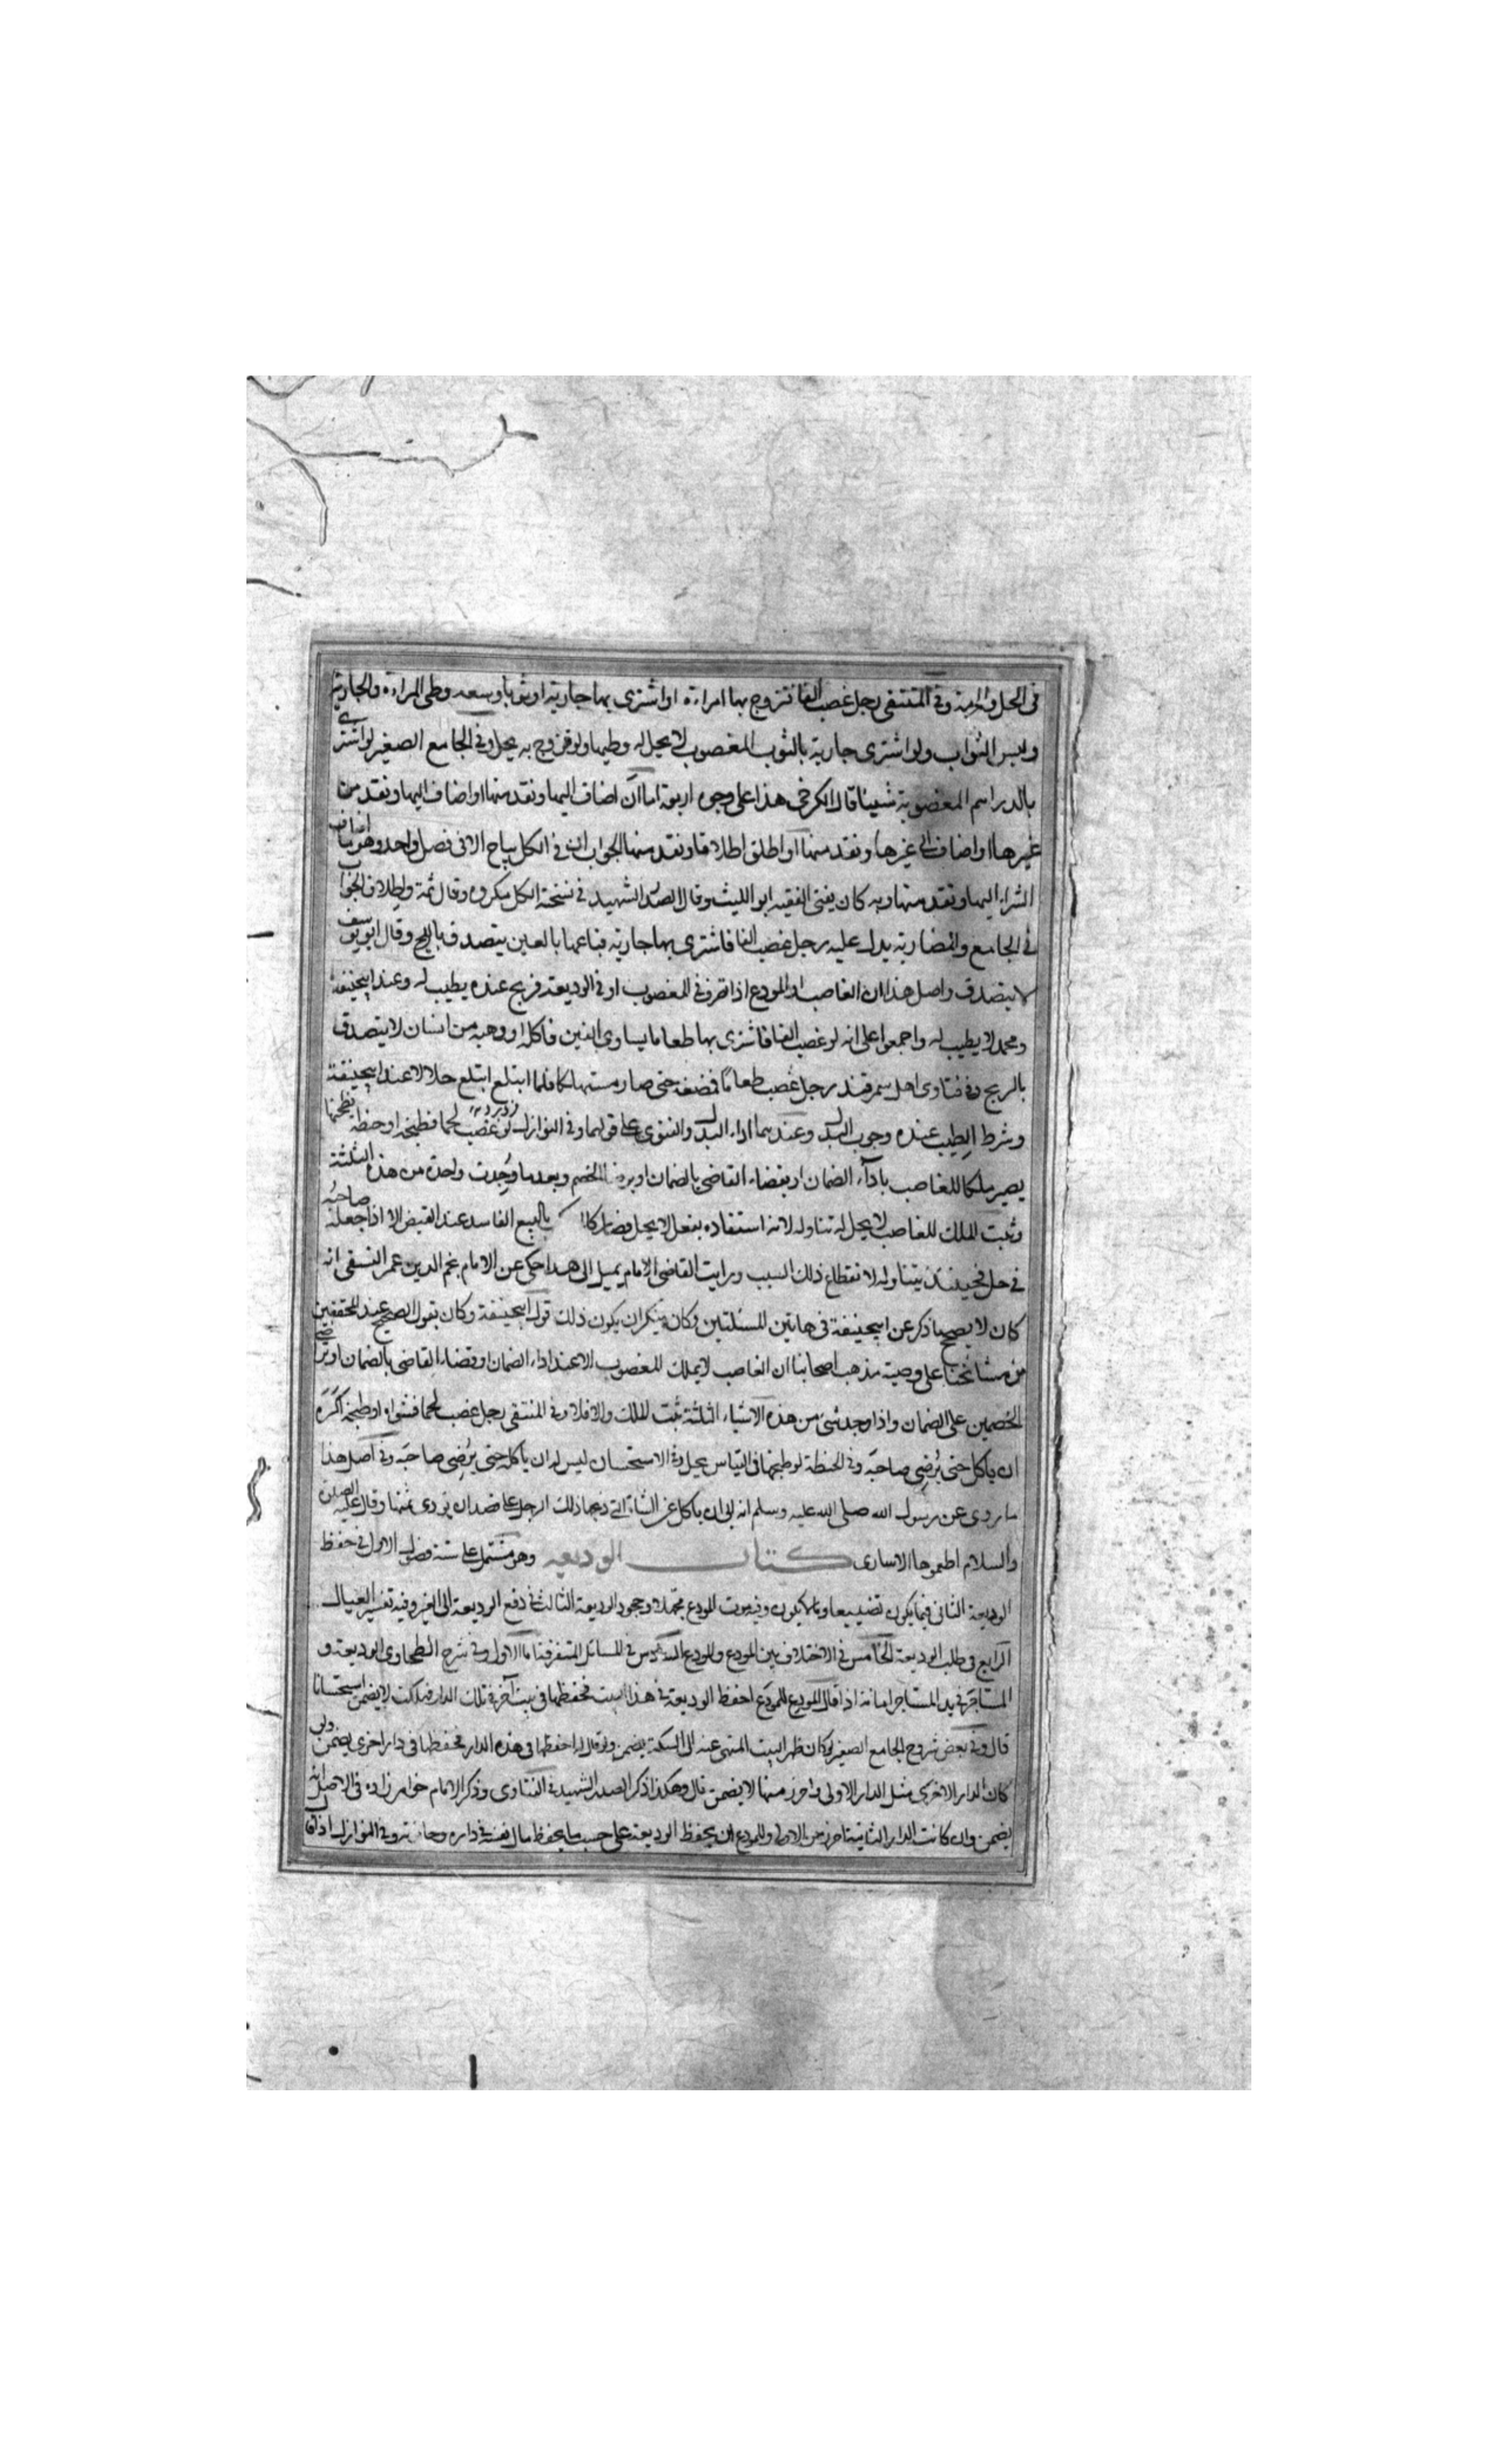 في الحل والحرمة وفي المنتقى رجل غصب الفا فتزوج بها امراءة او اشترى بها جارية او ثوبا وسعه وطى المراءة والجارية
ولبس الثواب ولو اشترى جارية بالثوب المغصوب لا يحل له وطيها ولو تزوج به يحل وفي الجامع الصغير لو اشترى
بالدراهم المغصوبة شيئا قال الكرخي هذا على وجوه اربعة اما ان اضاف اليها ونقد منها او اضاف اليها ونقد من
غيرها او اضاف الى غيرها ونقد منها او اطلق اطلاقا ونقد منها الجواب ان في الكل يباح الا في فصل واحد وهو ما اضاف
الشراء اليها ونقد منها وبه كان يفتى الفقيه ابو الليث وقال الصدر الشهيد في نسخته الكل مكروه وقال ثمة واطلاق الجواب
في الجامع والمضاربة يدل عليه رجل غصب الفا فاشترى بها جارية فباعها بالفين يتصدق بالربح وقال ابو يوسف
لا يتصدق واصل هذا ان الغاصب او المودع اذا تصرف في المغصوب او في الوديعة فربح عنده يطيب له وعند ابيحنيفة
ومحمد لا يطيب له واجمعوا على انه لو غصب الفا فاشترى بها طعاما يساوى الفين فاكله او وهبه من انسان لا يتصدق
بالربح وفي فتاوى اهل سمرقند رجل غصب طعاما فمضغه حتى صار مستهلكا فلما ابتلع ابتلع حلالا عند ابيحنيفة
وشرط الطيب عنده وجوب البدل وعندهما اداء البدل والفتوى على قولهما وفي النوازل لو غصب لحما فطبخه او حنطة فطحنها
يصير ملكا للغاصب باداء الضمان او بقضاء القاضي بالضمان او برضا الخصم وبعد ما وجدت واحدة من هذه الثلثة
وثبت الملك للغاصب لا يحل له تناوله لانه استفاده بفعل لا يحل فصار كا بالبيع الفاسد عند القبض الا اذا جعله صاحبه
في حل فحينئذ يتناوله لانقطاع ذلك السبب ورايت القاضي الامام يميل الى هذا حكى عن الامام نجم الدين عمر النسفي انه
كان لا يصحح ما ذكر عن ابيحنيفة في هاتين المسئلتين وكان ينكر ان يكون ذلك قول ابيحنيفة وكان يقول الصحيح عند المحققين
من مشائخنا على وصية مذهب اصحابنا ان الغاصب لا يملك المغصوب الا عند اداء الضمان او قضاء القاضي بالضمان او تراضي
الخصمين على الضمان واذا وجد شئ من هذه الاشياء الثلثة ثبت الملك والا فلا وفي المنتقى رجل غصب لحما فشواه او طبخه اكره
ان ياكل حتى يرضى صاحبه وفي الحنطة لو طبخها في القياس يحل وفي الاستحسان ليس له ان ياكله حتى يرضى صاحبه وفي اصل هذا
ما روى عن رسول الله صلى الله عليه وسلم انه ابى ان ياكل عن الشاة التي ذبحها ذلك الرجل على قصد ان يودى ثمنها وقال عليه الصلوة
والسلام اطعموها الاسارى كتاب الوديعه وهو مشتمل على ستة فصول الاول في حفظ
الوديعة الثاني فيما يكون تضييعا وما لا يكون وفي موت المودع مجملا وجحود الوديعة الثالث في دفع الوديعة الى الغير وفيه تفسير العيال
الرابع في طلب الوديعة الخامس في الاختلاف بين المودع والمودع السادس في المسائل المتفرقة اما الاول وفي شرح الطحاوى الوديعة و
المستاجر في يد المستاجر امانة اذا قال المودع للمودع احفظ الوديعة في هذا البيت فحفظها في بيت آخر في تلك الدار فهلكت لا يضمن استحسانا
قال وفي بعض شروح الجامع الصغير لو كان ظهر البيت المنهى عنه الى السكة يضمن ولو قال له احفظها في هذه الدار فحفظها في دار اخرى يضمن ولو
كان الدار الاخرى مثل الدار الاولى واحرز منها لا يضمن قال وهكذا ذكر الصدر الشهيد في الفتاوى وذكر الامام خواهر زاده في الاصل انه
يضمن وان كانت الدار الثانية احرز من الاولى وللمودع ان يحفظ الوديعة على حسب ما يحفظ مال نفسه في داره وحانوته وفي النوازل اذا قال